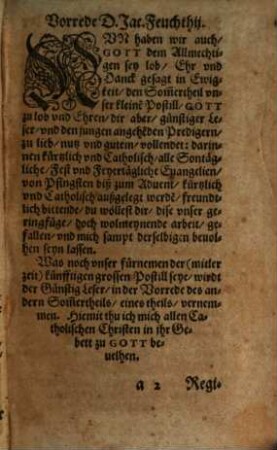 Vorrede D. Jac. Feuchthij.
NUN haben wir auch/
GOTT dem Allmechti-
gen sey lob/ Ehr vnd
Danck gesagt in Ewig-
keit/ den Som̃ertheil vn-
ser kleinẽ Postill/ GOTT
zu lob vnd Ehren/ dir aber/ günstiger Le-
ser/ vnd den jungen angehẽden Predigern/
zu lieb/ nutz vnd gutem/ vollendet: darin-
nen kürtzlich vnd Catholisch/ alle Sontäg-
liche/ Fest vnd Feyertägliche Euangelien/
von Pfingsten biß zum Aduent/ kürtzlich
vnd Catholisch außgelegt werdẽ/ freundt-
lich bittende/ du wöllest dir/ dise vnser ge-
ringfüge/ hoch wolmeynende arbeit/ ge-
fallen/ vnd mich sampt derselbigen beuol-
hen seyn lassen.
Was noch vnser fürnemen der (mitler
zeit) künfftigen grossen Postill seye/ wirdt
der Günstig Leser/ in der Vorrede des an-
dern Som̃ertheils/ eines theils/ vernem-
men. Hiemit thu ich mich allen Ca-
tholischen Christen in ihr Ge-
bett zu GOTT be-
uelhen.
a 2 Regi-